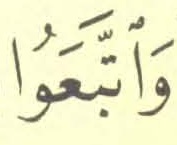 وَٱتَّبَعُوا